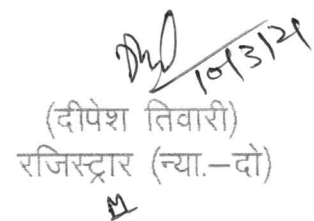 10/3/21
(दीपेश तिवारी)
रजिस्ट्रार (न्या.–दो)